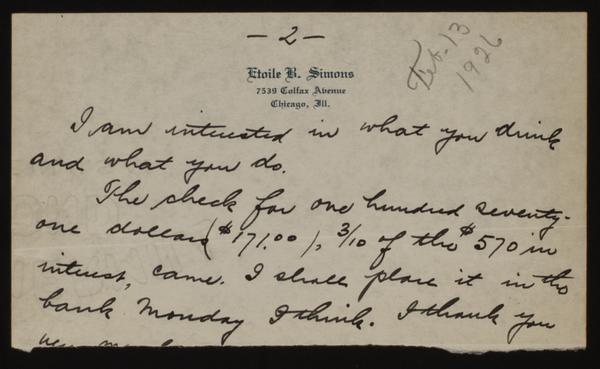 - 2 -
Feb. 13
1926
Etoile B. Simons
7539 Colfax Avenue
Chicago, Ill.
I am interested in what you drink
and what you do.
The check for one hundred seventy-
one dollars ($171.00), 3/10 of the $570 in
interest, came. I shall place it in the
bank Monday I think. I thank you